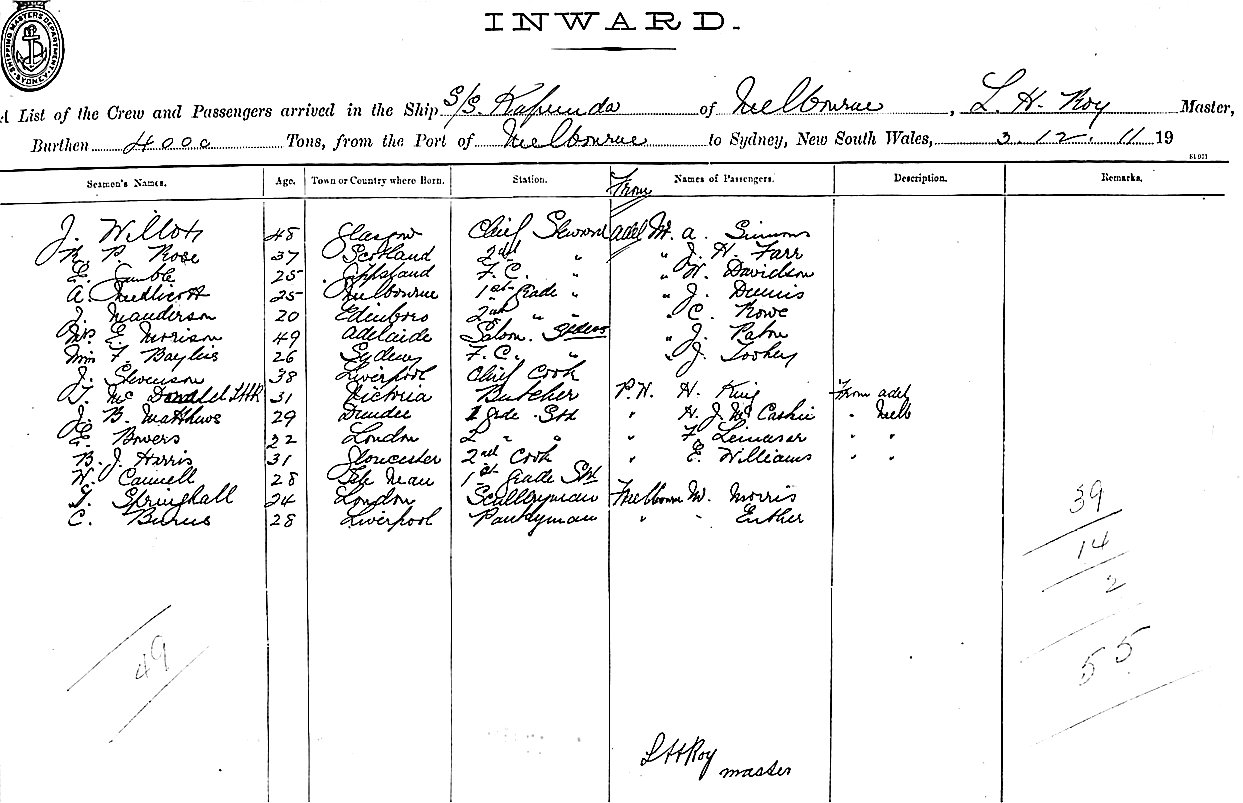 SHIPPING MASTERS DEPARTMENT SYDNEY
INWARD.
A List of the Crew and Passengers arrived in the Ship S/S. Kapunda of Melbourne, L. H. Roy Master,
Burthen 4000 Tons, from the Port of Melbourne to Sydney, New South Wales, 3.12.11 19
Seamen's Names. Age. Town or Country where Born. Station. From Names of Passengers. Description. Remarks.
J. Willots 48 Glasgow Chief Steward Adel M. A. Simmons
P. Rose 37 Scotland 2nd " " J. H. Farr
E. Gamble 25 Gippsland F.C. " W. Davidson
A. Medlicott 25 Melbourne 1st Grade " " J. Dennis
J. Manderson 20 Edinboro 2nd " " " C. Rowe
Mrs E. Morrison 49 Adelaide Saloon " J. Paton
Miss F. Baylis 26 Sydney F.C. " " J. Tookey
J. Stevenson 38 Liverpool Chief Cook
Mc Donald 31 Victoria Butcher P.H. H. King From Adel
J. B. Matthews 29 Dundee 1 Grade Std " H. J. McCashie " Melb
E. Bowers 22 London 2 " " " F. Lemaser " "
B. J. Harris 31 Gloucester 2nd Cook " E. Williams " "
W. Cannell 28 Isle Man 1st Grade Std
Stringhall 24 London Scullryman F Melbourn W. Morris
C. Burns 28 Liverpool Pantryman " "
39
14
2
55
49
L H Roy
master